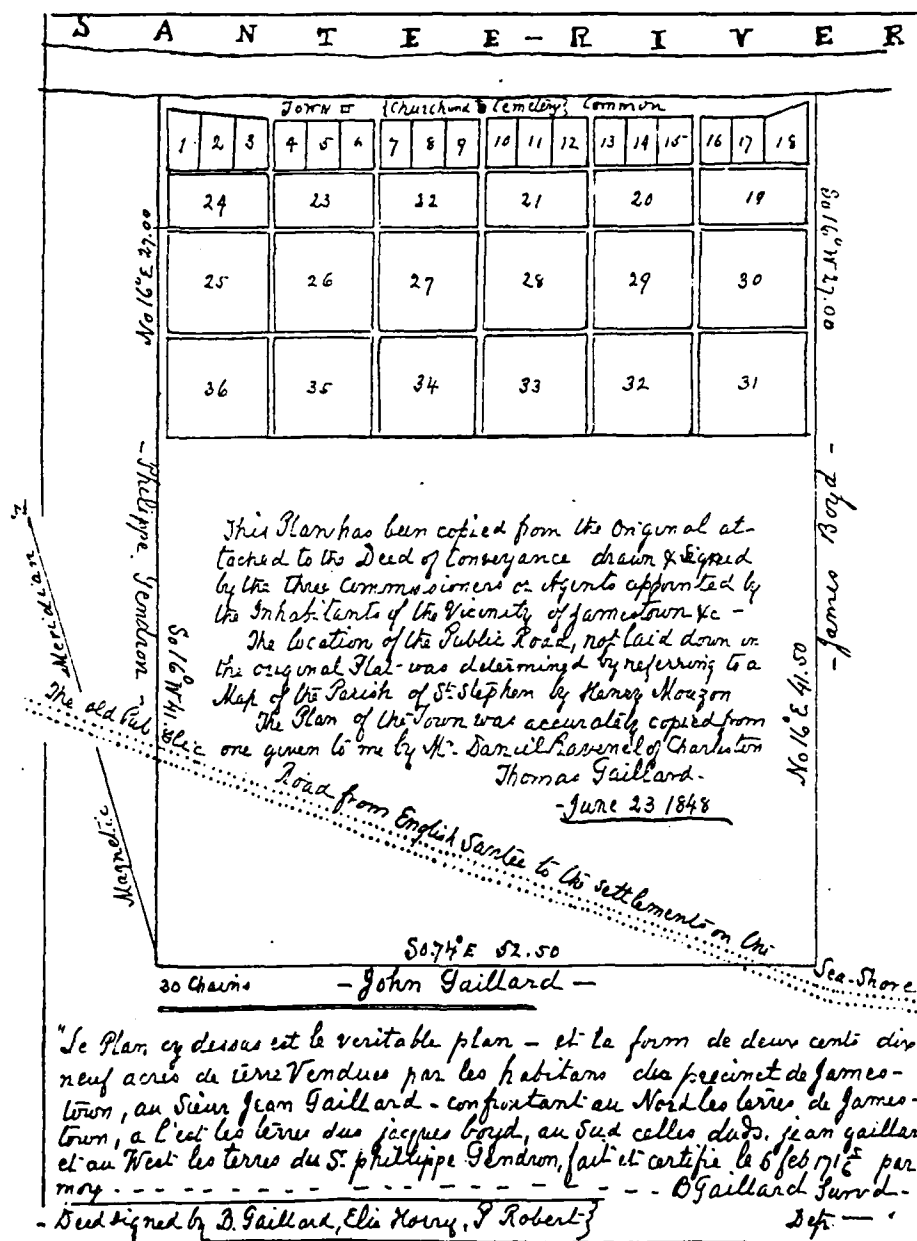 SANTEE-RIVER
Town {Church and Cemetery} Common
1 2 3 4 5 6 7 8 9 10 11 12 13 14 15 16 17 18
24 23 22 21 20 19
25 26 27 28 29 30
36 35 34 33 32 31
No 16° E 27.00
So 16° W 27.00
- Philippe Gendron -
- James Boyd -
So 16° W 41.50
No 16° E 41.50
Magnetic Meridian
This Plan has been copied from the Original at-
tached to the Deed of Conveyance drawn & Signed
by the three Commissioners or Agents appointed by
the Inhabitants of the Vicinity of Jamestown &c -
The location of the Public Road, not laid down in
the original Plat - was determined by referring to a
Map of the Parish of St. Stephen by Henry Mouzon
The Plan of the Town was accurately copied from
one given to me by Mr. Daniel Ravenel of Charleston
Thomas Gaillard -
- June 23 1848
The old Public Road from English Santee to the settlements on the Sea-Shore
So. 74° E 52.50
30 Chains
- John Gaillard -
"Le Plan cy dessus est le veritable plan - et la form de deux cents dix
neuf acres de terre Vendues par les habitans du precinct de James-
town, au Sieur Jean Gaillard - confrontant au Nord les terres de James-
town, a l'est les terres dus jacques boyd, au Sud celles duds. jean gaillard
et au West les terres du Sr. phillippe Gendron, fait et certifie le 6 feb 171 5/6 par
moy - - - - - - - - - - - - - - BGaillard Survd-
- Deed signed by B. Gaillard, Elie Horry, P Robert} Dep. —